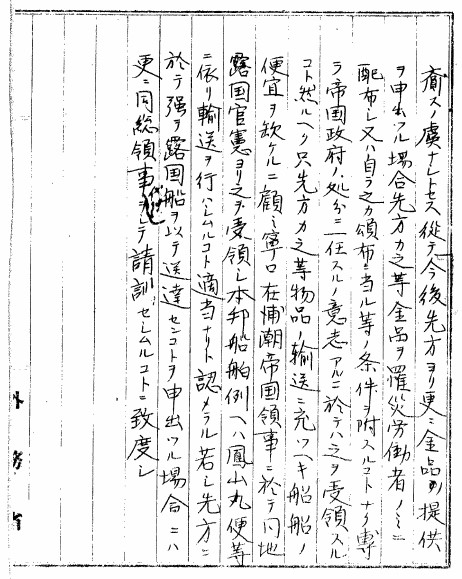 虞ナシトセス従テ今後先方ヨリ更ニ金品ノ提供
ヲ申出ツル場合先方カ之等金品ヲ罹災労働者ノミニ
配布シ又ハ自ラ之カ頒布ニ当ル等ノ条件ヲ附スルコトナク専
ラ帝国政府ノ処分ニ一任スルノ意志アルニ於テハ之ヲ受領スル
コト然ルヘク只先方カ之等物品ノ輸送ニ充ツヘキ船舶ノ
便宜ヲ欠ケルニ顧ミ寧ロ在浦潮帝国領事ニ於テ同地
露国官憲ヨリ之ヲ受領シ本邦船舶例ヘハ鳳山丸便等
ニ依リ輸送ヲ行ハシムルコト適当ナリト認メラル若シ先方ニ
於テ強ヲ露国船ヲ以テ送達センコトヲ申出ツル場合ニハ
更ニ同総領事ヲシテ請訓セシムルコトニ致度シ
外務省